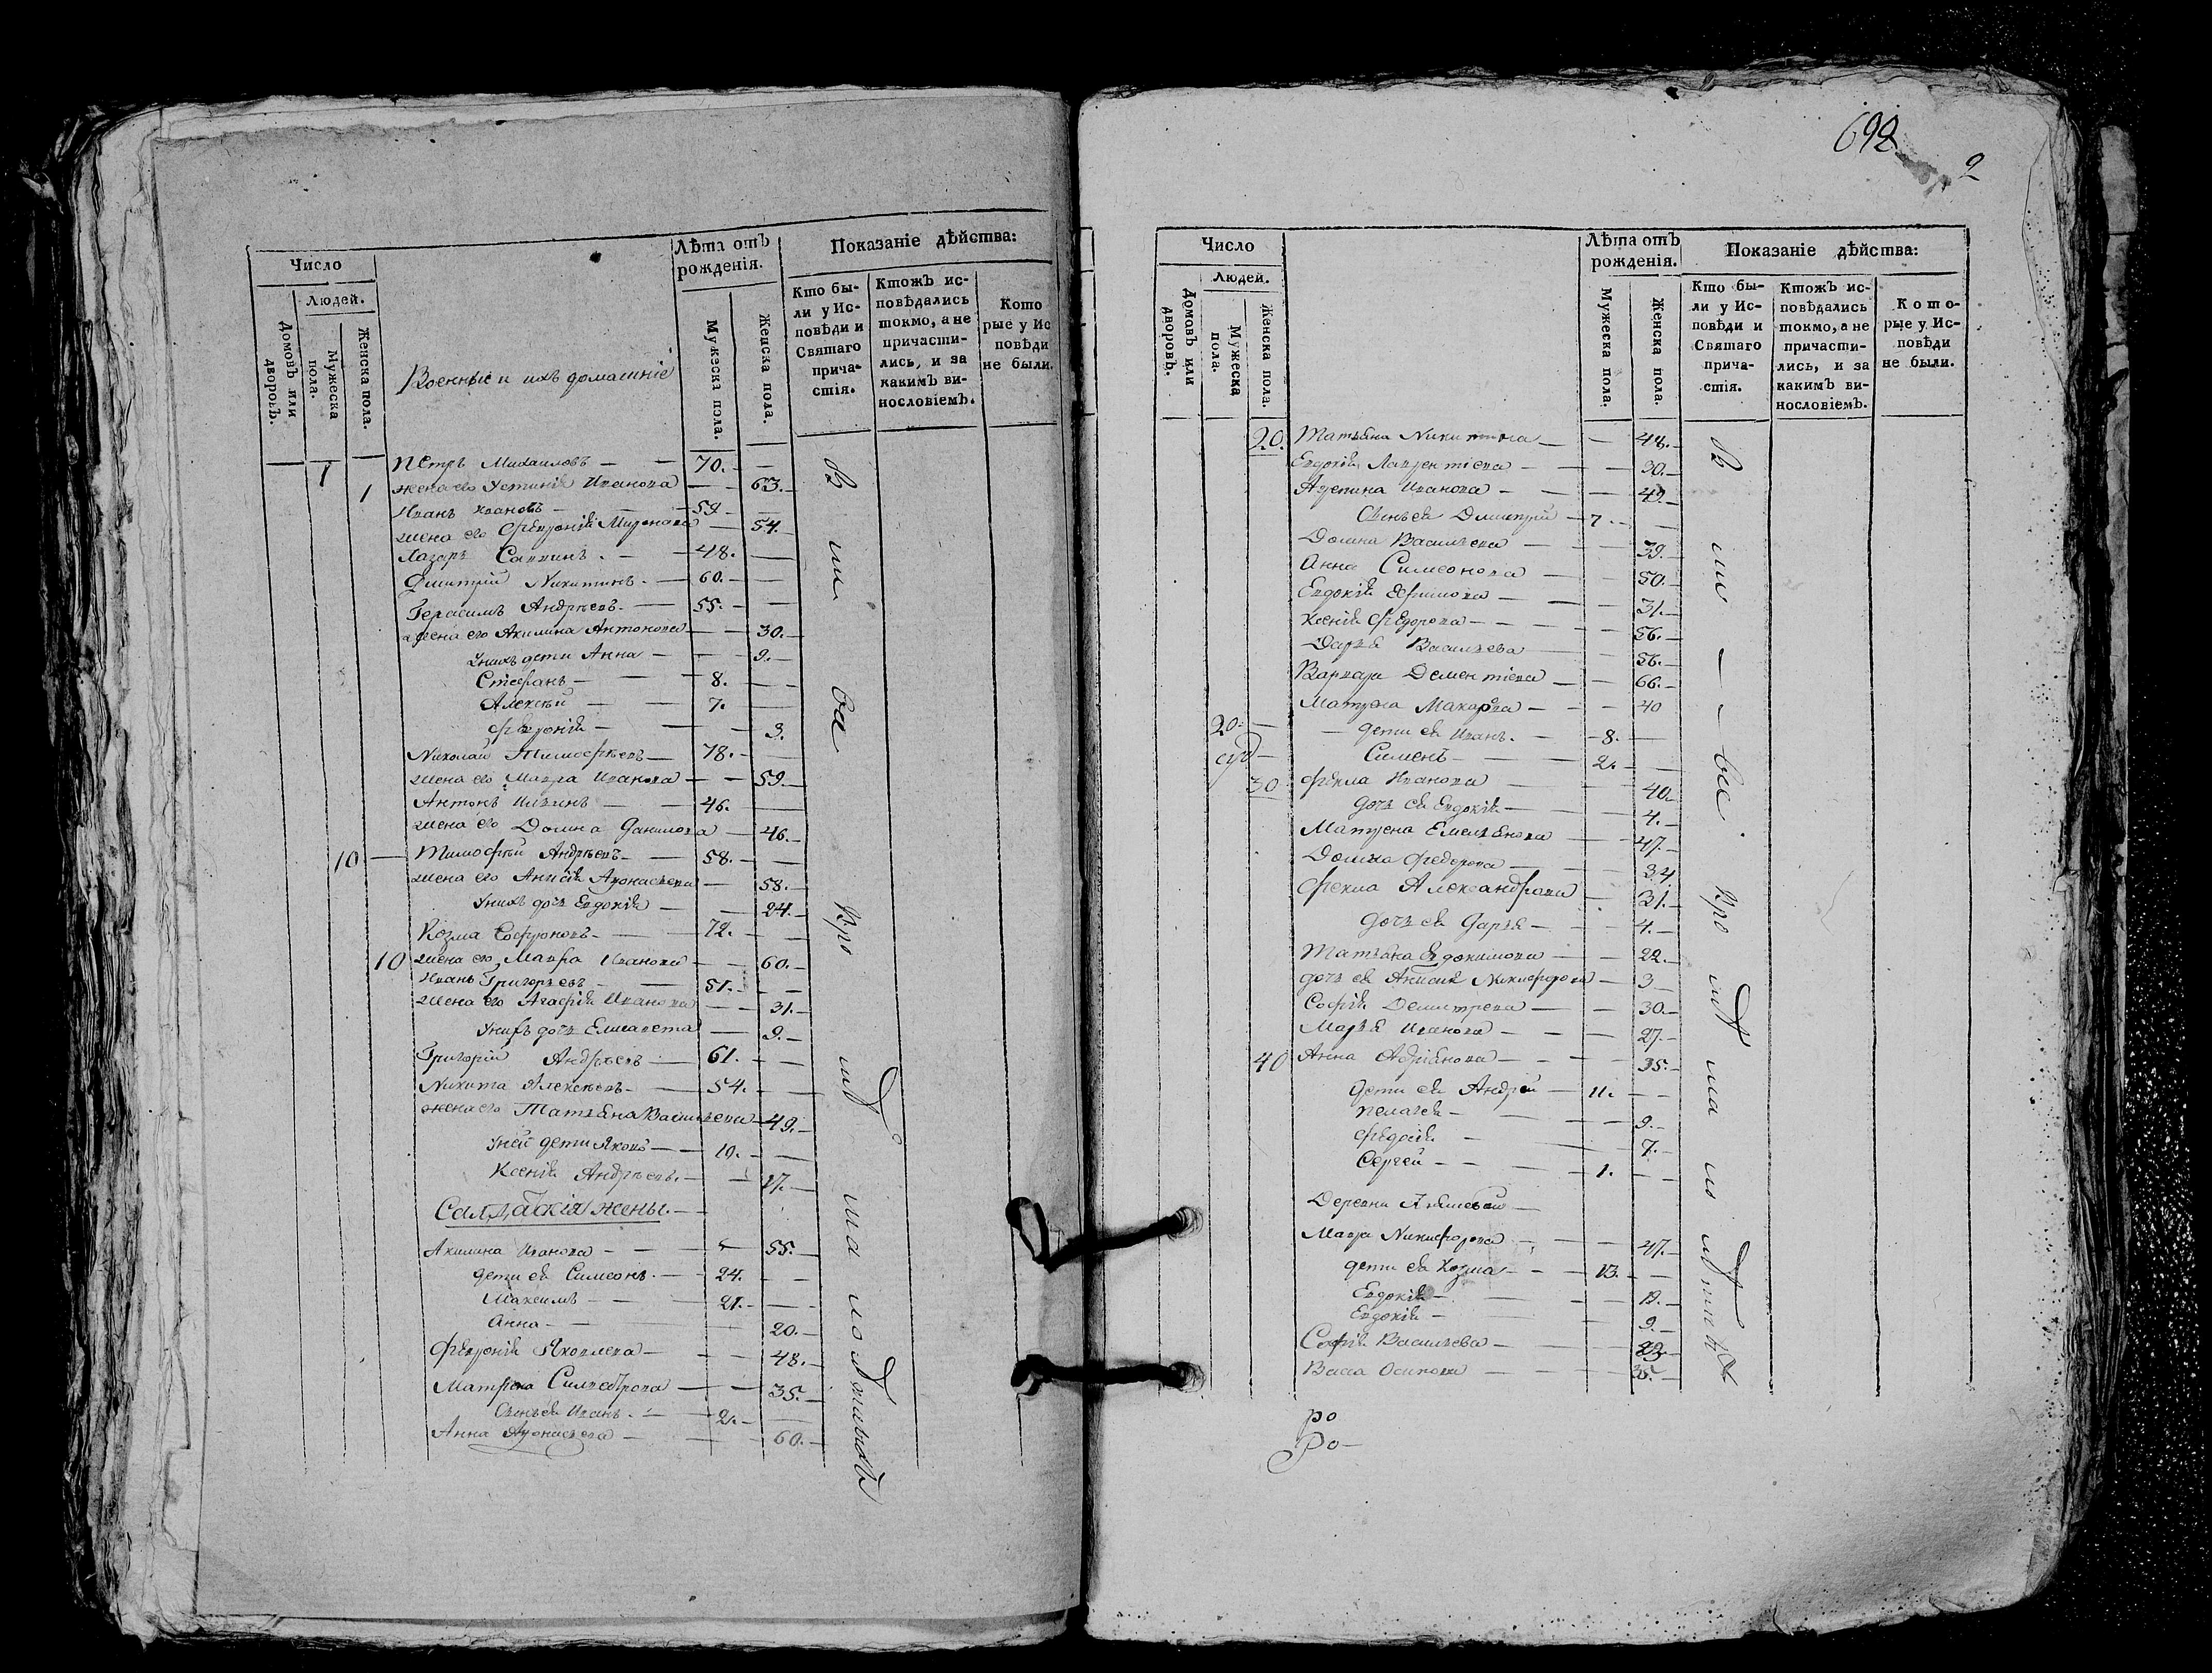 Число
Людей.
Домовъ или дворовъ.
Мужеска пола.
Женска пола.
Военные и ихъ домашніе
Лѣта отъ рожденія.
Мужеска пола.
Женска пола.
Показаніе дѣйства:
Кто были у Исповѣди и Святаго причастія.
Ктожъ исповѣдались токмо, а не причастились, и за какимъ винословіемъ.
Которые у Исповѣди не были.
1 Петръ Михаиловъ — — 70. —
1 жена его Устинія Иванова — — 63. —
Иванъ Ивановъ — 59. —
жена его Феѵронія Миронова — 54. —
Лазарь Саввинъ. — — 48. —
Дмитрій Никитинъ. — 60. —
Герасимъ Андрѣевъ. — 55. —
жена его Акилина Антонова — — 30. —
У нихъ дети Анна — — 9. —
Стефанъ — — 8. —
Алексѣй — — 7. —
Феѵронія — — 3.
Николай Тимофѣевъ — 78. —
жена его Мавра Иванова — — 59. —
Антонъ Ильинъ — — 46. —
жена его Домна Данилова — 46. —
10 — Тимофѣй Андрѣевъ — — 58. —
жена его Анисія Афонасьева — 58. —
У нихъ дочь Евдокія — — 24. —
Козма Софроновъ — — 72. —
10 жена его Мавра Иванова — — 60. —
Иванъ Григорьевъ — — 51. —
жена его Агафія Иванова — — 31. —
У нихъ дочь Елисавета — 9. —
Григорій Андрѣевъ — 61. —
Никита Алексѣевъ — — 54. —
жена его Татьяна Васильева — 49. —
У ней дети Яковъ — — 10. —
Ксенія Андрѣева. — — 17. —
Салдатскія жены. —
Акилина Иванова — — — 55. —
дети ея Симеонъ. — 24. —
Максимъ — — 21. —
Анна — — 20. —
Феѵронія Яковлева — — 48. —
Матрена Сильвестрова — — 35. —
Сынъ ея Иванъ. — 2. —
Анна Афонасьева — 60. —
692
2
Число
Людей.
Домовъ или дворовъ.
Мужеска пола.
Женска пола.
Лѣта отъ рожденія.
Мужеска пола.
Женска пола.
Показаніе дѣйства:
Кто были у Исповѣди и Святаго причастія.
Ктожъ исповѣдались токмо, а не причастились, и за какимъ винословіемъ.
Которые у Исповѣди не были.
20. Татьяна Никитина — — 48. —
Евдокія Лаврентіева — — 30. —
Агрепина Иванова — — 49. —
Сынъ ея Дмитрій — 7. —
Домна Васильева — — 39. —
Анна Симеонова — — 50. —
Евдокія Ефимова — — 31. —
Ксенія Федорова — — 56. —
Дарья Васильева — — 56. —
Варвара Дементіева — — 66. —
Матрена Макарова — — 40
20. — дети ея Иванъ. — 8. —
Сименъ — — 2. —
30 Фекла Иванова — — 40. —
дочь ея Евдокія — — 4. —
Матрена Емельянова — — 47. —
Домна Федорова — — 34
Фекла Александрова — 31. —
дочь ея Дарья — — 4. —
Татьяна Евдокимова — — 22. —
дочь ея Анисия Никифорова — 3 —
Софія Демитрева — — 30. —
Марья Иванова — — 27. —
40 Анна Адріянова — — 35. —
дети ея Андрей — 11. —
Пелагея — — 9. —
Федосія — — 7. —
Сергей — — 1. —
Деревни
Мавра Никифорова — — 47. —
дети ея Козма — — 13. —
Евдокія — — 12. —
Евдокія — — 9. —
Софія Васильева — — 23
Васса Осипова — — 35. —
ро
Ро —